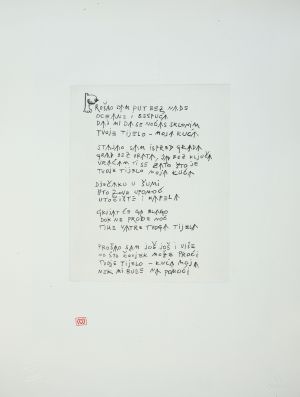 PROŠAO SAM PUT BEZ NADE
OČIANJE I BESPUĆA
DAJ MI DA SE NOĆAS SKLONIM
TVOJE TIJELO - MOJA KUĆA
STAJAO SAM ISPRED GRADA
GRAD BEZ VRATA, JA BEZ KLJUČA
VRAĆAM TI SE ZATO ŠTO JE
TVOJE TIJELO MOJA KUĆA
DJEČAKU U ŠUMI
ŠTO ZOVE UPOMOĆ
UTOČIŠTE I KAPELA
GRIJAT ĆE GA BLAGO
DOK NE PROĐE NOĆ
TIHE VATRE TVOGA TIJELA
PROŠAO SAM JOŠ JOŠ I VIŠE
NO ŠTO ČOVJEK MOŽE PROĆI
TVOJE TIJELO - KUĆA MOJA
NEK MI BUDE NA POMOĆI